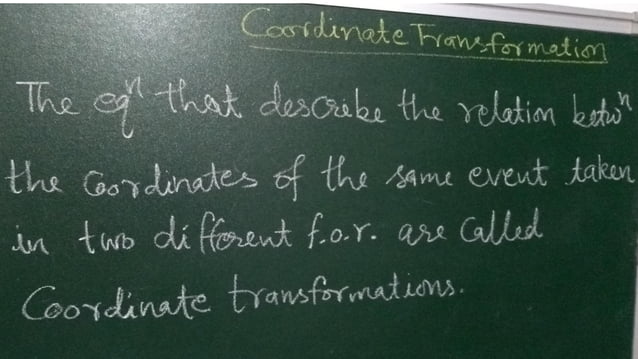 Coordinate Transformation
The eqⁿ that describe the relation betwⁿ
the Coordinates of the same event taken
in two different f.o.r. are Called
Coordinate transformations.